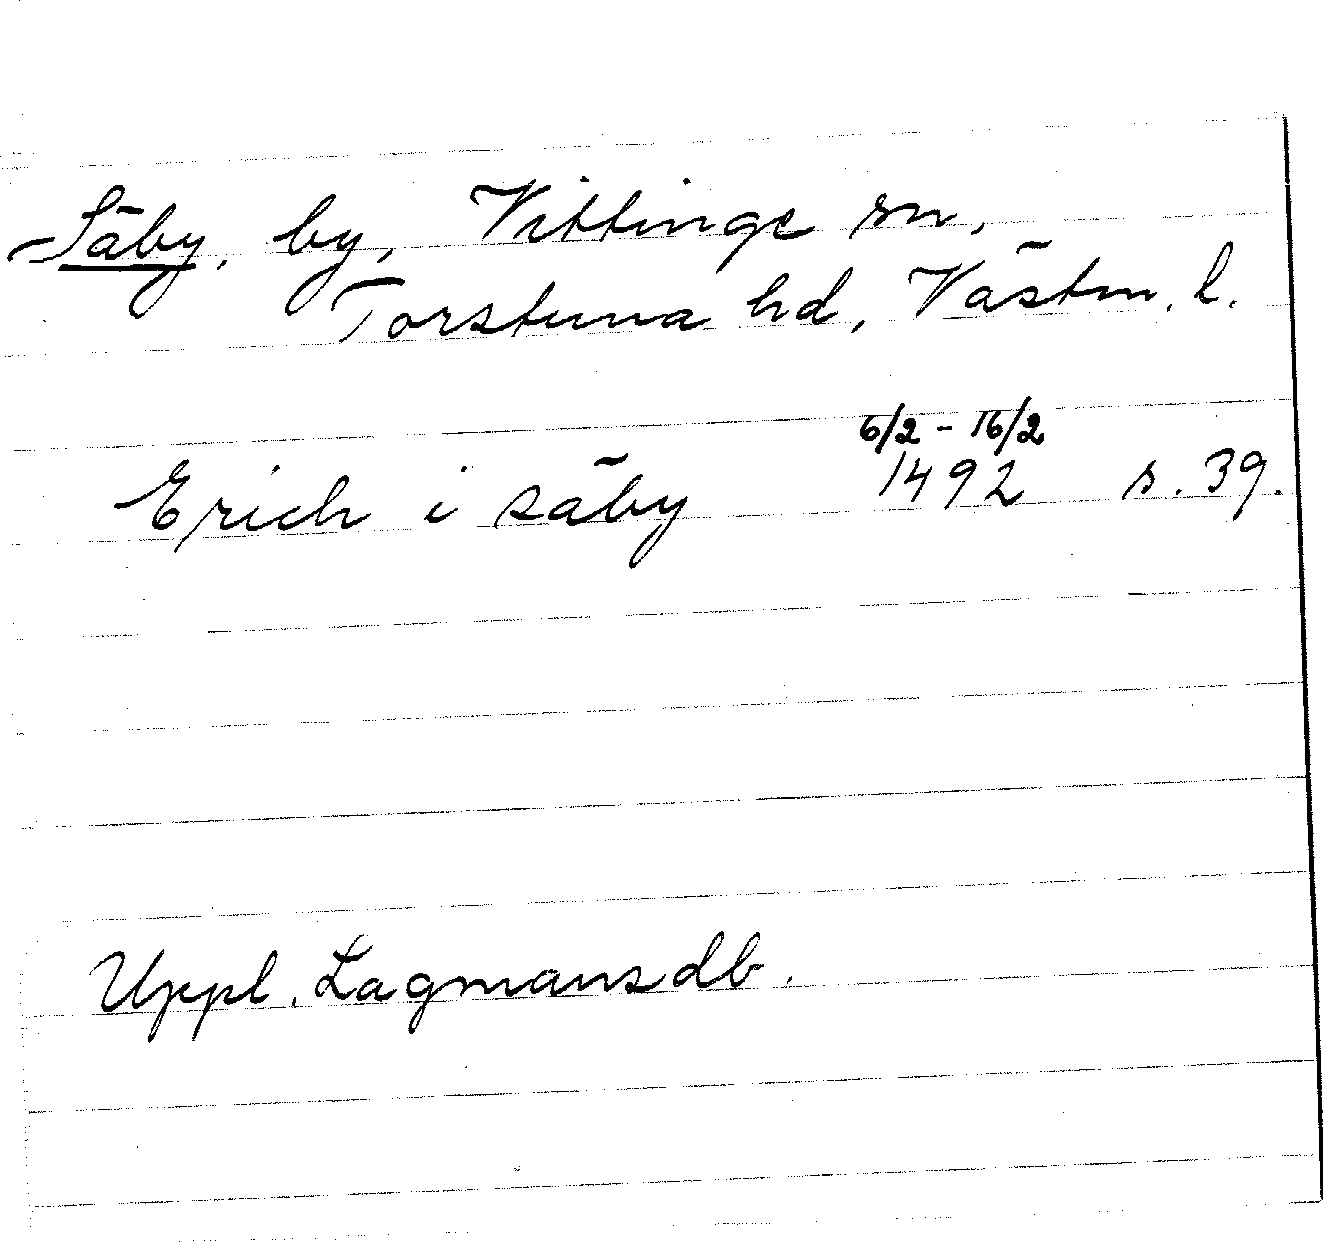 Säby, by, Vittinge sn,
Torstuna hd, Västm. l.
6/2 - 16/2
Erich i säby 1492 s. 39.
Uppl. Lagmansdb.